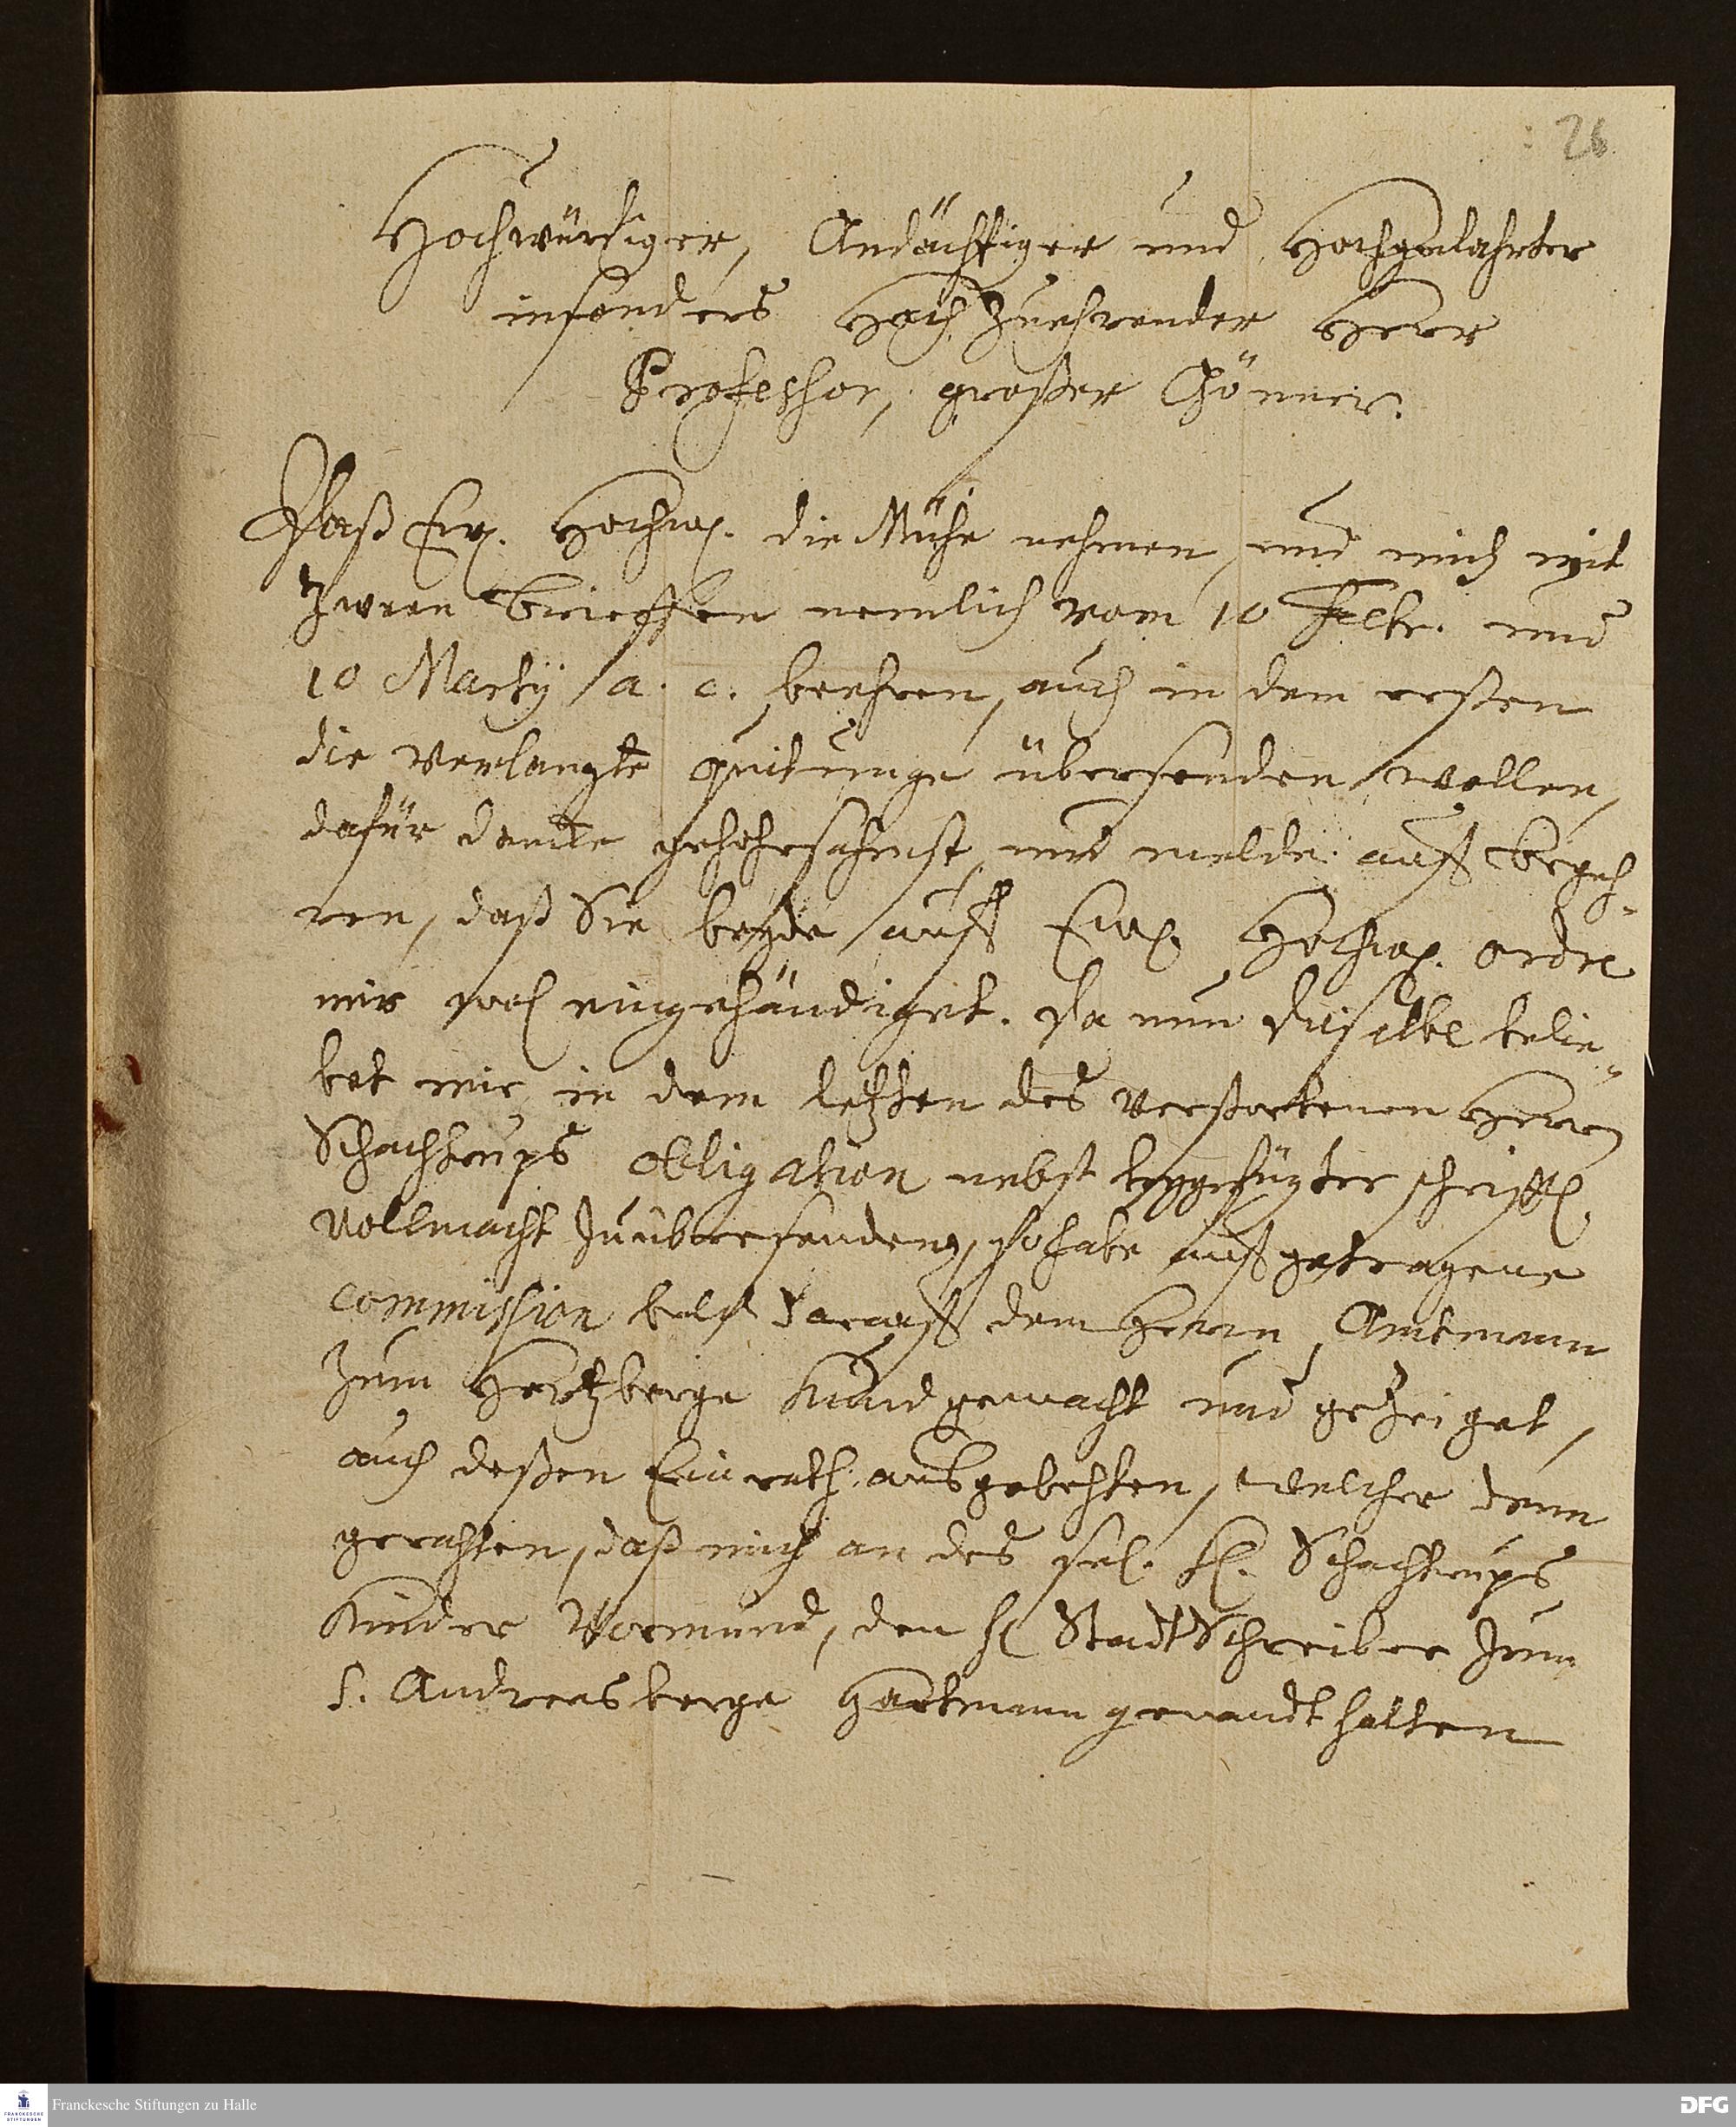 26
Hochwürdiger, Andächtiger und Hochgelahrter
insonders Hoch Zuehrender Herr
Professor, großer Gönner.
Daß Ew. Hochw. die Mühe nehmen, und mich mit
Zween brieffen nemlich vom 10 Febr. und
10 Martÿ a. c. beehren, auch in dem ersten
die verlangte quitunge übersenden wollen,
dafür dancke gehohrsahmst, und melde auff begeh-
ren, daß Sie beyde auff Ew. Hochw. ordre
mir wol eingehändiget. Da nun dieselbe belie-
bet mir in dem letzten des verstorbenen Herrn
Schachtrups obligation nebst beygefügter schrifftl.
Vollmacht Zuübersenden, so habe auffgetragene
commission bald darauff dem Herrn Amtmann
Zum Hertzberge kundgemacht und geZeiget,
auch deßen Einrath ausgebehten, welcher denn
gerahten, daß mich an des sel. H. Schachtrups
Kinder Vormund, den H StadtSchreiber Zum
S. Andreasberge Hartmann gewandt hätten
Franckesche Stiftungen zu Halle
FRANCKESCHE STIFTUNGEN
DFG